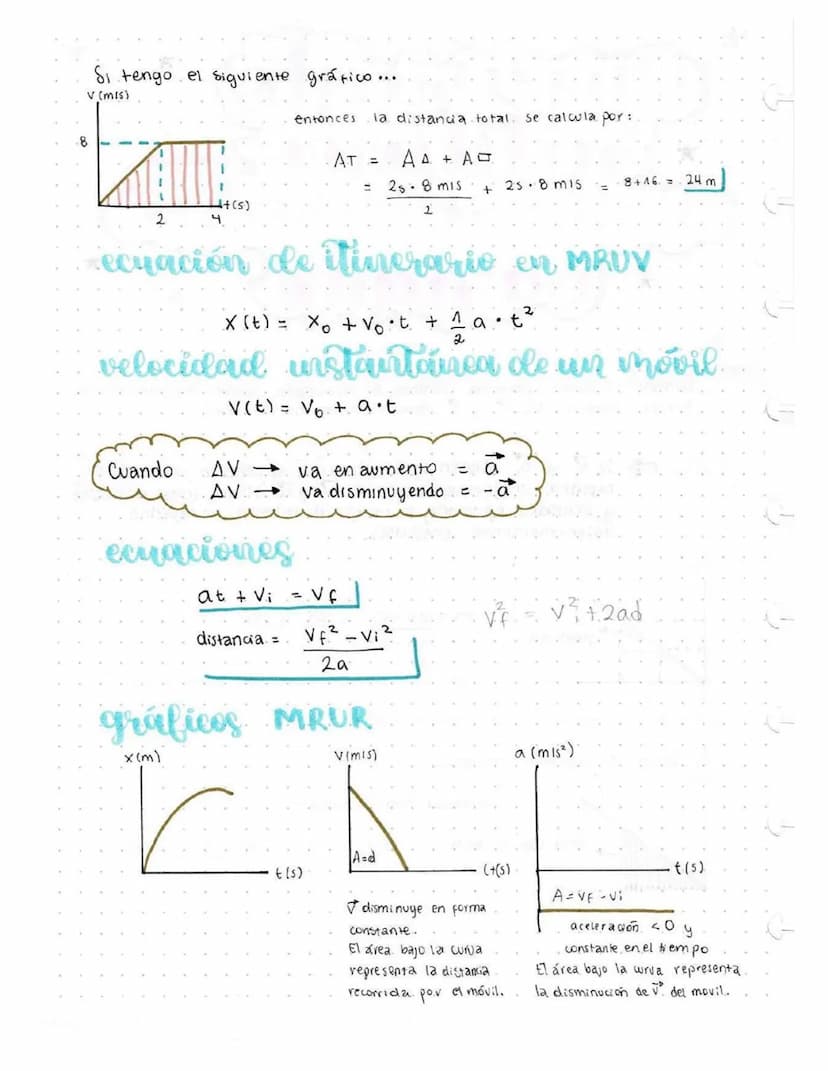 Si tengo el siguiente gráfico...
V (m/s)
8
2
4
t(s)
entonces la distancia total se calcula por:
AT = A△ + A□
= 2s · 8 m/s / 2 + 2s · 8 m/s = 8+16 = 24 m
ecuación de itinerario en MRUV
X(t) = X₀ + V₀ · t + 1/2 a · t²
velocidad instantánea de un móvil
V(t) = V₀ + a · t
Cuando ΔV → va en aumento = a⃗
ΔV → va disminuyendo = -a⃗
ecuaciones
at + Vi = Vf
distancia = Vf² - Vi² / 2a
Vf² = Vi² + 2ad
gráficos MRUR
x (m)
t(s)
V(m/s)
A=d
(t(s)
a (m/s²)
t(s)
A = Vf - Vi
V⃗ disminuye en forma
constante.
El área bajo la curva
representa la distancia
recorrida por el móvil.
aceleración < 0 y
constante en el tiempo
El área bajo la curva representa
la disminución de V⃗ del movil.